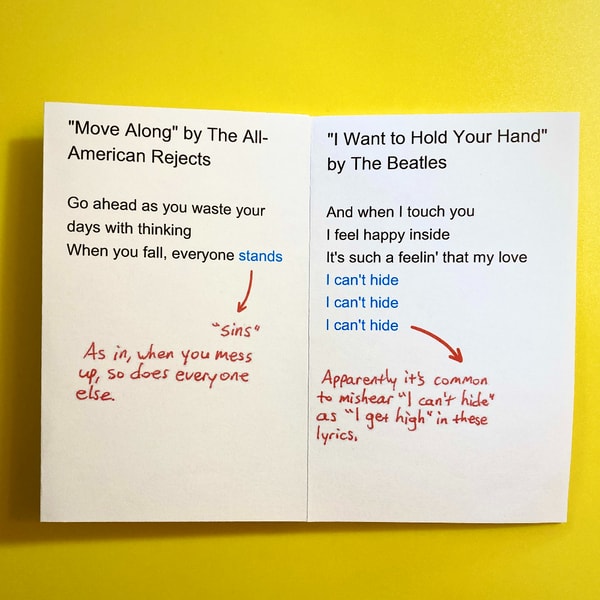 "Move Along" by The All-
American Rejects
Go ahead as you waste your
days with thinking
When you fall, everyone stands
"sins"
As in, when you mess
up, so does everyone
else.
"I Want to Hold Your Hand"
by The Beatles
And when I touch you
I feel happy inside
It's such a feelin' that my love
I can't hide
I can't hide
I can't hide
Apparently it's common
to mishear "I can't hide"
as "I get high" in these
lyrics.